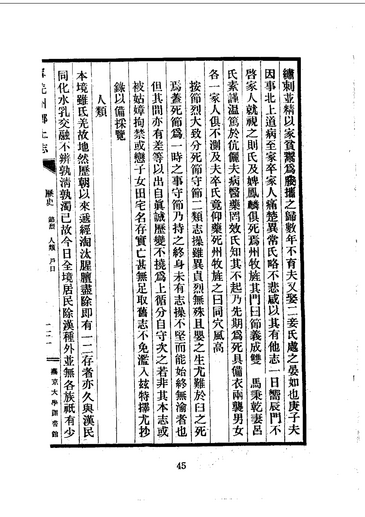 繡刺並精以家貧鬻爲媵攜之歸數年不育夫又娶二妾氏處之晏如也庚子夫
因事北上道病至家卒家人痛楚異常氏略不悲慼以其有他志一日嚮辰門不
啓家人就視之則氏及婢鳳麟俱死焉州牧旌其門曰節義成雙 馬秉乾妻呂
氏素謹溫篤於伉儷夫病醫藥罔效氏知其不起乃先期爲死具備衣兩襲男女
各一家人俱不測及夫卒氏竟仰藥死州牧旌之曰同穴風高
按節烈大致分死節守節二類志操雖異貞烈無殊且嫠之生尤難於曰之死
焉蓋死節爲一時之事守節乃持之終身未有志操不堅而能始終無渝者也
但其間亦有差等以出自眞誠歷變不撓爲上循分自守次之若非其本志或
被姑嫜拘禁或戀子女田宅名存實亡甚無足取舊志不免濫入玆特擇尤抄
錄以備採覽
人類
本境雖氐羌故地然歷朝以來遞經淘汰腥膻盡除即有一二存者亦久與漢民
同化水乳交融不辨孰淸孰濁已故今日全境居民除漢種外並無各族祇有少
州鄉土志
歷史 節烈 人類 戶口
二一
燕京大學圖書館
45